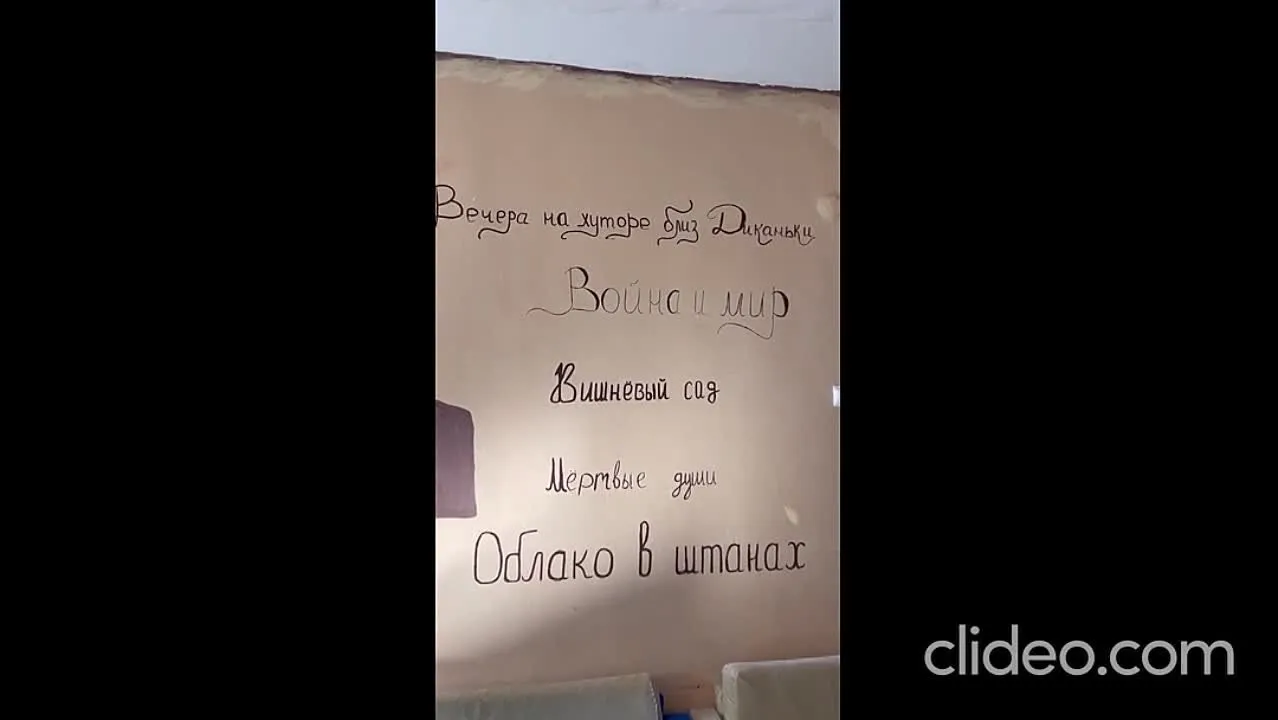 Вечера на хуторе близ Диканьки
Война и мир
Вишнёвый сад
Мёртвые души
Облако в штанах
clideo.com